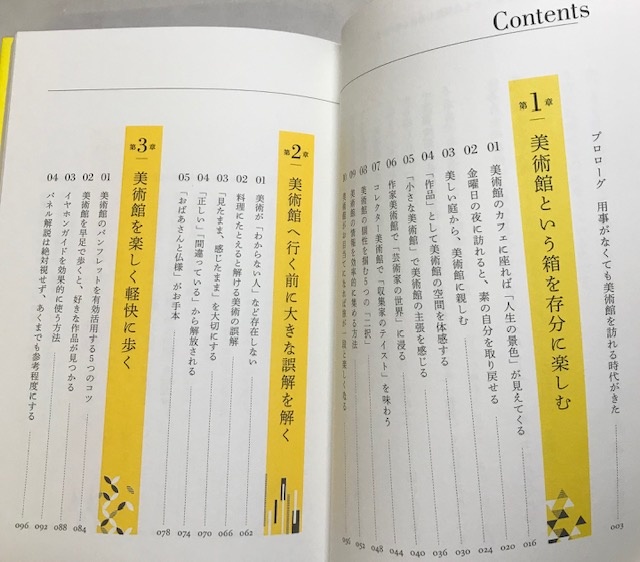 Contents
プロローグ 用事がなくても美術館を訪れる時代がきた 003
第1章 美術館という箱を存分に楽しむ
01 美術館のカフェに座れば「人生の景色」が見えてくる 016
02 金曜日の夜に訪れると、素の自分を取り戻せる 020
03 美しい庭から、美術館に親しむ 024
04 「作品」として美術館の空間を体感する 030
05 「小さな美術館」で美術館の主張を感じる 036
06 作家美術館で「芸術家の世界」に浸る 040
07 コレクター美術館で「収集家のテイスト」を味わう 044
08 美術館の個性を掴む5つの「二択」 048
09 美術館の情報を効率的に集める方法 052
10 056
第2章 美術館へ行く前に大きな誤解を解く
01 美術が「わからない人」など存在しない 062
02 料理にたとえると解ける美術の誤解 066
03 「見たまま、感じたまま」を大切にする 070
04 「正しい」「間違っている」から解放される 074
05 「おばあさんと仏様」がお手本 078
第3章 美術館を楽しく軽快に歩く
01 美術館のパンフレットを有効活用する5つのコツ 084
02 美術館を早足で歩くと、好きな作品が見つかる 088
03 イヤホンガイドを効果的に使う方法 092
04 パネル解説は絶対視せず、あくまでも参考程度にする 096